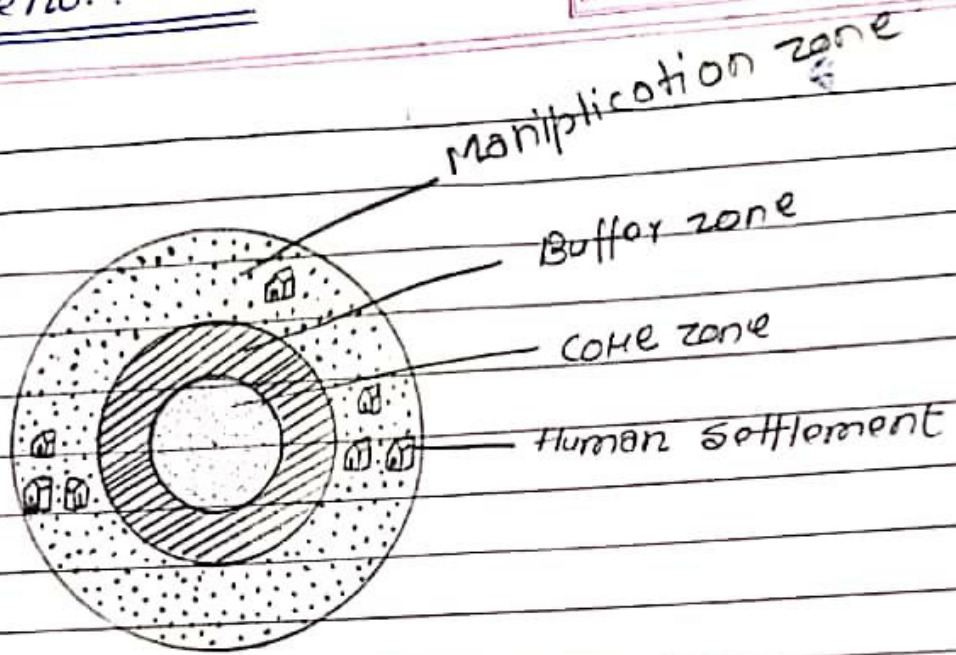 no.:
Maniplication zone
Buffer zone
Core zone
Human settlement